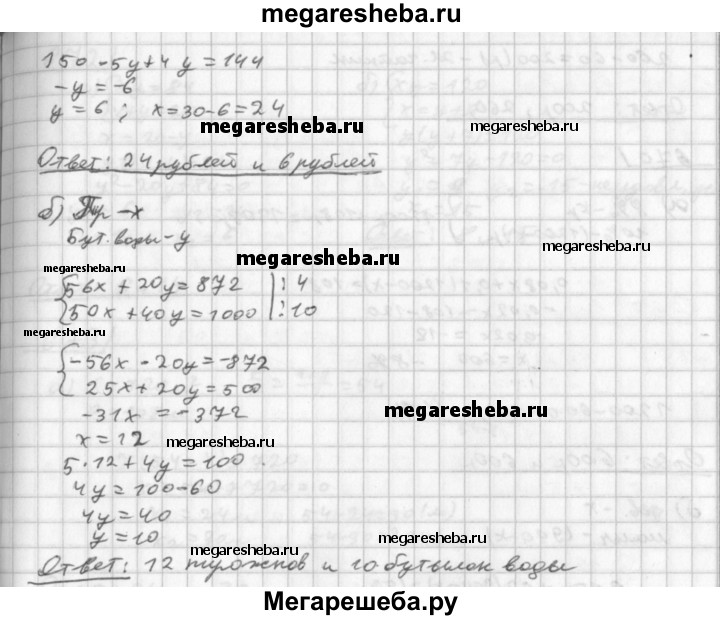 megaresheba.ru
150 - 5y + 4y = 144
-y = -6
y = 6 ; x = 30 - 6 = 24
megaresheba.ru megaresheba.ru
Ответ: 24 рублей и 6 рублей
б) Пир - x
Бут. воды - y
megaresheba.ru megaresheba.ru
megaresheba.ru
{56x + 20y = 872 | : 4
{50x + 40y = 1000 | : 10
megaresheba.ru megaresheba.ru
{-56x - 20y = -872
{25x + 20y = 500
-31x = -372
megaresheba.ru
x = 12 megaresheba.ru
5 · 12 + 4y = 100
megaresheba.ru
4y = 100 - 60
4y = 40
y = 10
megaresheba.ru megaresheba.ru
Ответ: 12 пирожков и 10 бутылок воды
Мегарешеба.ру